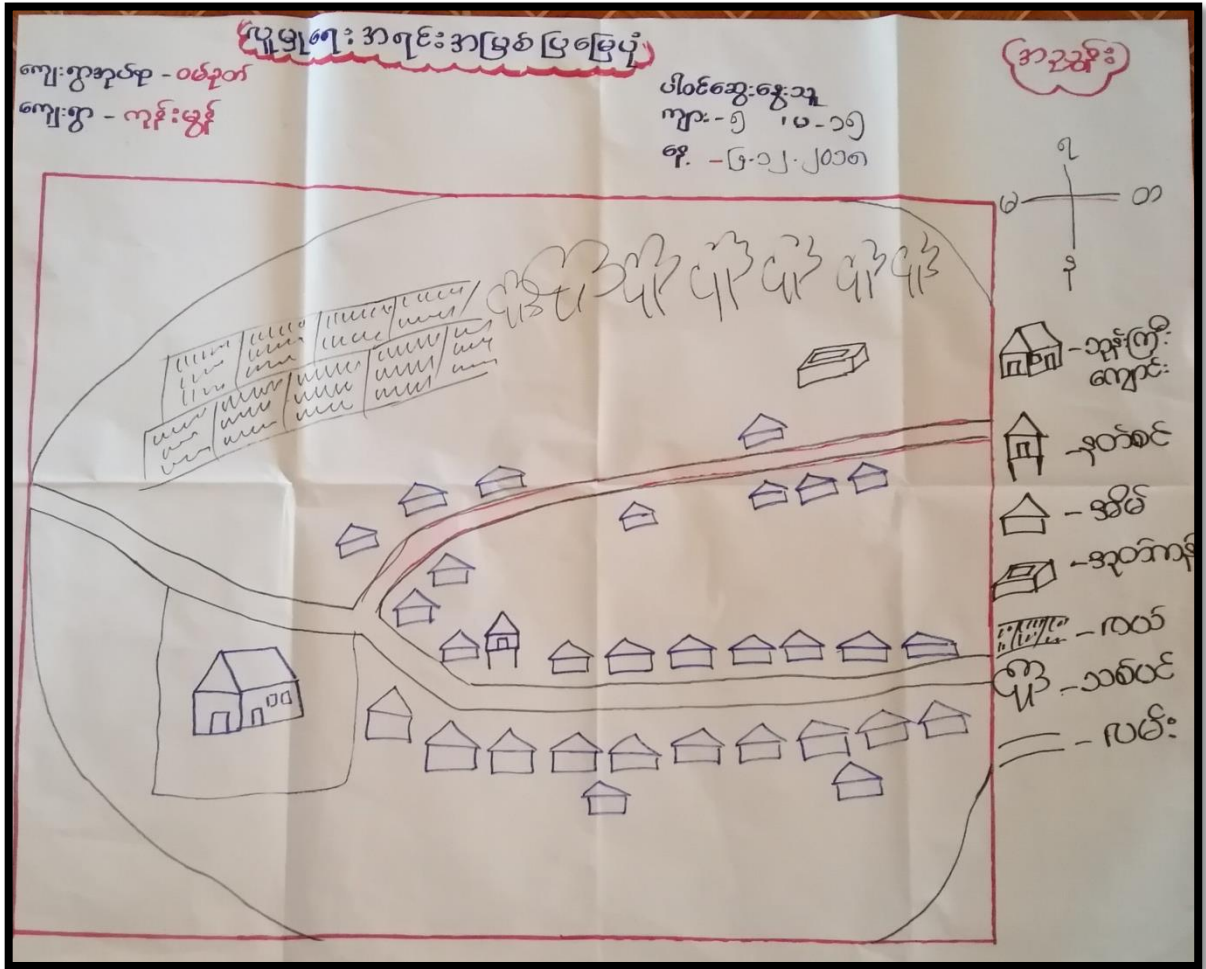 လူမှုရေးအရင်းအမြစ်ပြမြေပုံ
ကျေးရွာအုပ်စု - ဝမ်ခုတ်
ကျေးရွာ - ကုန်းမွန်
ပါဝင်ဆွေးနွေးသူ
ကျား - ၅ ၊ မ - ၁၅
နေ့ -
အညွှန်း
မ
တ
န
ဘုန်းကြီး
ကျောင်း
နတ်စင်
အိမ်
အုတ်ကန်
လယ်
သစ်ပင်
လမ်း